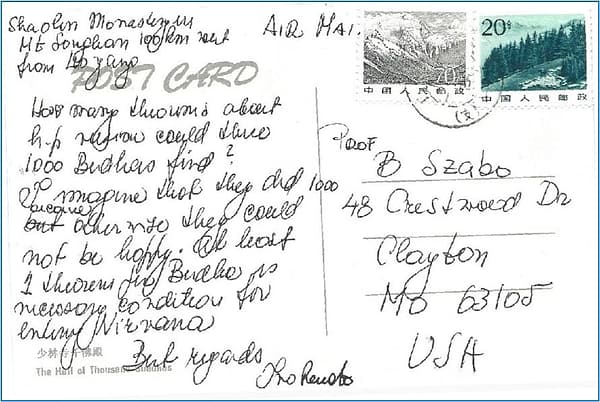 Shaolin Monastery
Mt Songhan 100 km west
from
AIR MAIL
POST CARD
20分
中国人民邮政
70分
中国人民邮政
How many theorems about
h.p. region could these
1000 Budhas find?
I imagine that they did 1000
because
but otherwise they could
not be happy. At least
1 theorem for Budha is
necessary condition for
entering Nirvana
Best regards
少林寺千佛殿
The Hall of Thousand Buddhas
PROF
B Szabo
48 Crestwood Dr
Clayton
Mo 63105
USA